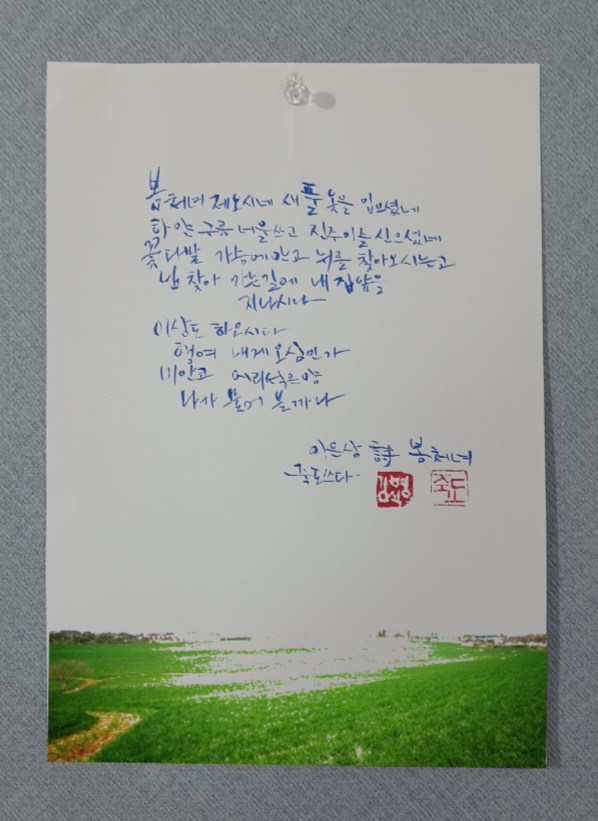 봄처녀 제오시네 새 풀 옷을 입으셨네
하얀 구름 너울쓰고 진주이슬 신으셨네
꽃다발 가슴에 안고 뉘를 찾아오시는고
님 찾아 가는길에 내 집앞을
지나시나
이상도 하오시다
행여 내게 오심인가
미안코 어리석은양
나가 물어 볼까나
이은상 詩 봄처녀
죽도쓰다
김형식
죽도